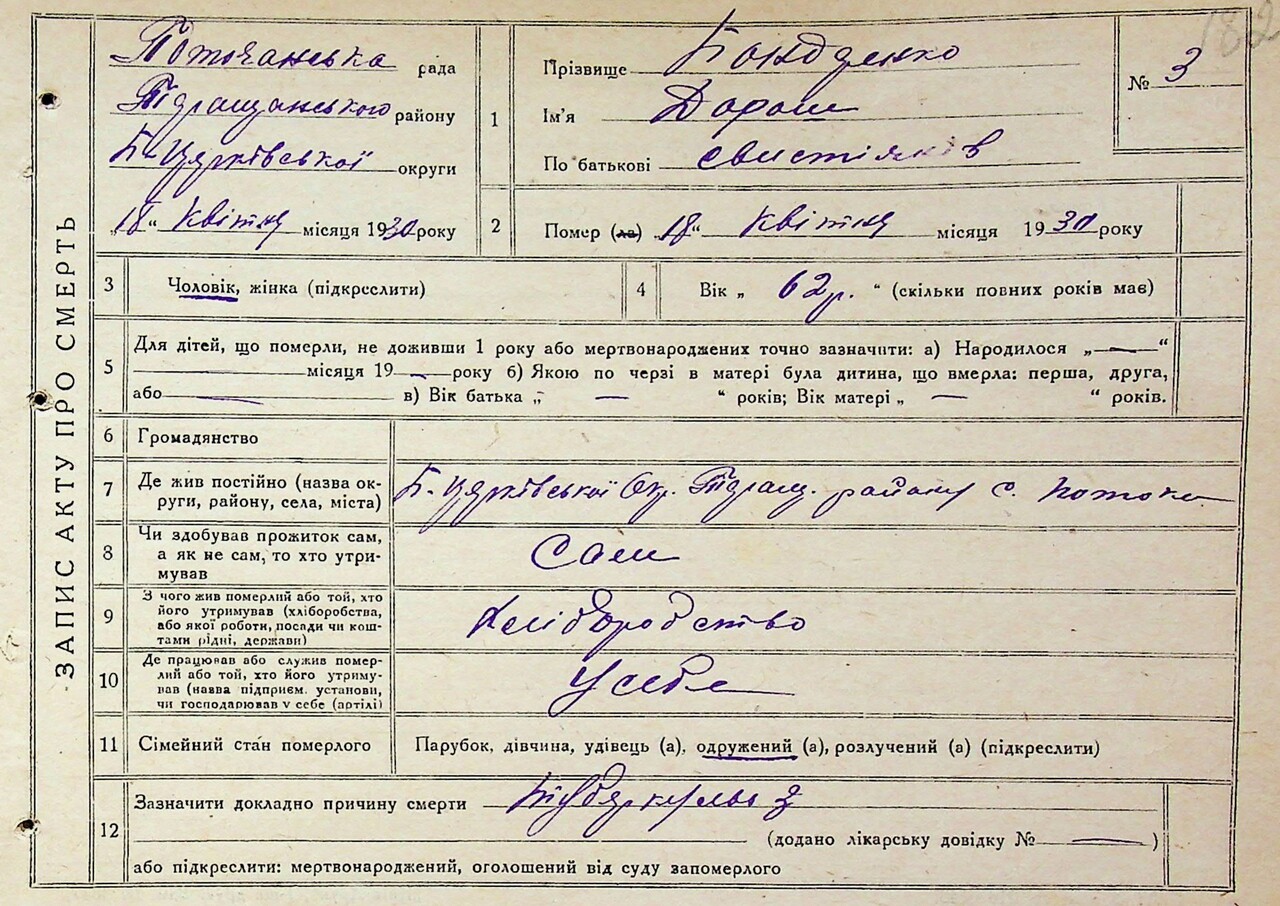 182
ЗАПИС АКТУ ПРО СМЕРТЬ
Поточанська рада
району
Б-Церківської округи
"18" Квітня місяця 1930 року
1
Прізвище Бондаренко
Ім'я Дорош
По батькові
№ 3
2 Помер (ла) "18" Квітня місяця 1930 року
3 Чоловік, жінка (підкреслити)
4 Вік „ 62 р. “ (скільки повних років має)
5 Для дітей, що померли, не доживши 1 року або мертвонароджених точно зазначити: а) Народилося „ — “
— місяця 19 — року б) Якою по черзі в матері була дитина, що вмерла: перша, друга,
або — в) Вік батька „ — “ років; Вік матері „ — “ років.
6 Громадянство
7 Де жив постійно (назва ок-
руги, району, села, міста)
Б. Церківської Окр. району с. Потоки
8 Чи здобував прожиток сам,
а як не сам, то хто утри-
мував
Сам
9 З чого жив померлий або той, хто
його утримував (хліборобства,
або якої роботи, посади чи кош-
тами рідні, держави)
Хліборобство
10 Де працював або служив помер-
лий або той, хто його утриму-
вав (назва підприєм. установи,
чи господарював у себе (артілі)
У себе
11 Сімейний стан померлого
Парубок, дівчина, удівець (а), одружений (а), розлучений (а) (підкреслити)
12 Зазначити докладно причину смерти Туберкульоз
(додано лікарську довідку № — )
або підкреслити: мертвонароджений, оголошений від суду запомерлого